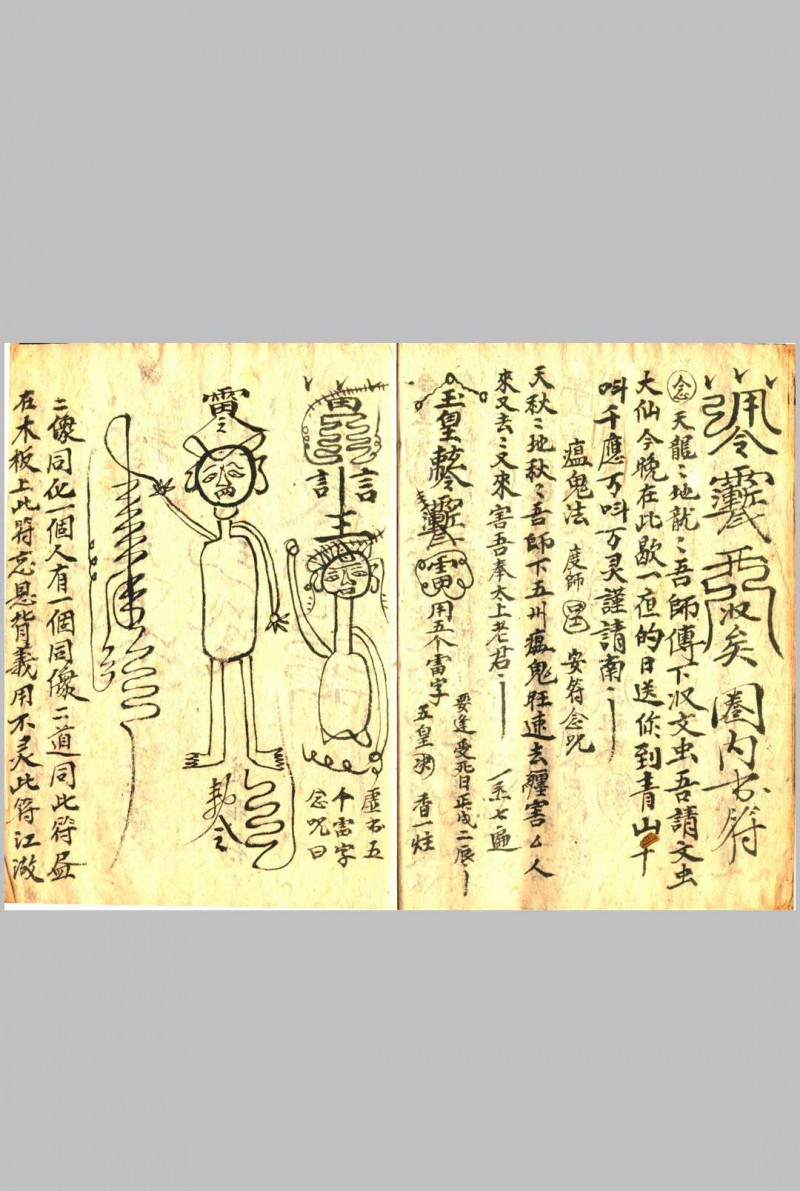 圈内书符
念天龍〻地龍〻吾師傅下收文虫吾請文虫
大仙今晚在此歇一夜的日送你到青山千
叫千應万叫万灵謹請南
瘟鬼法 度師 安符念咒
天秋〻地秋〻吾師下五州瘟鬼旺速去纏害厶人
來又去〻又來害吾奉太上老君 一炁七遍
玉皇 雷用五个雷字
要逢受死日正戌二辰
五皇 香一炷
雷
言 言
王
虛书五
个雷字
念咒曰
雷令
勅令
二像同化一個人有一個同像二道同此符昼
在木板上此符忘恩背義用不灵此符江湖